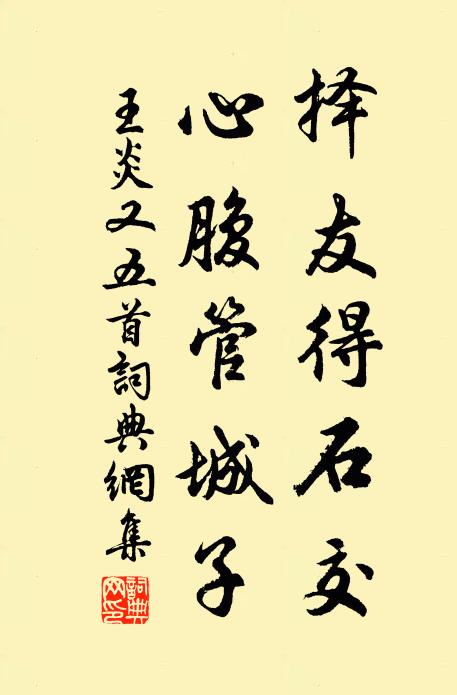 择友得石交
心腹管城子
王炎又五首詞典網集
詞典网印